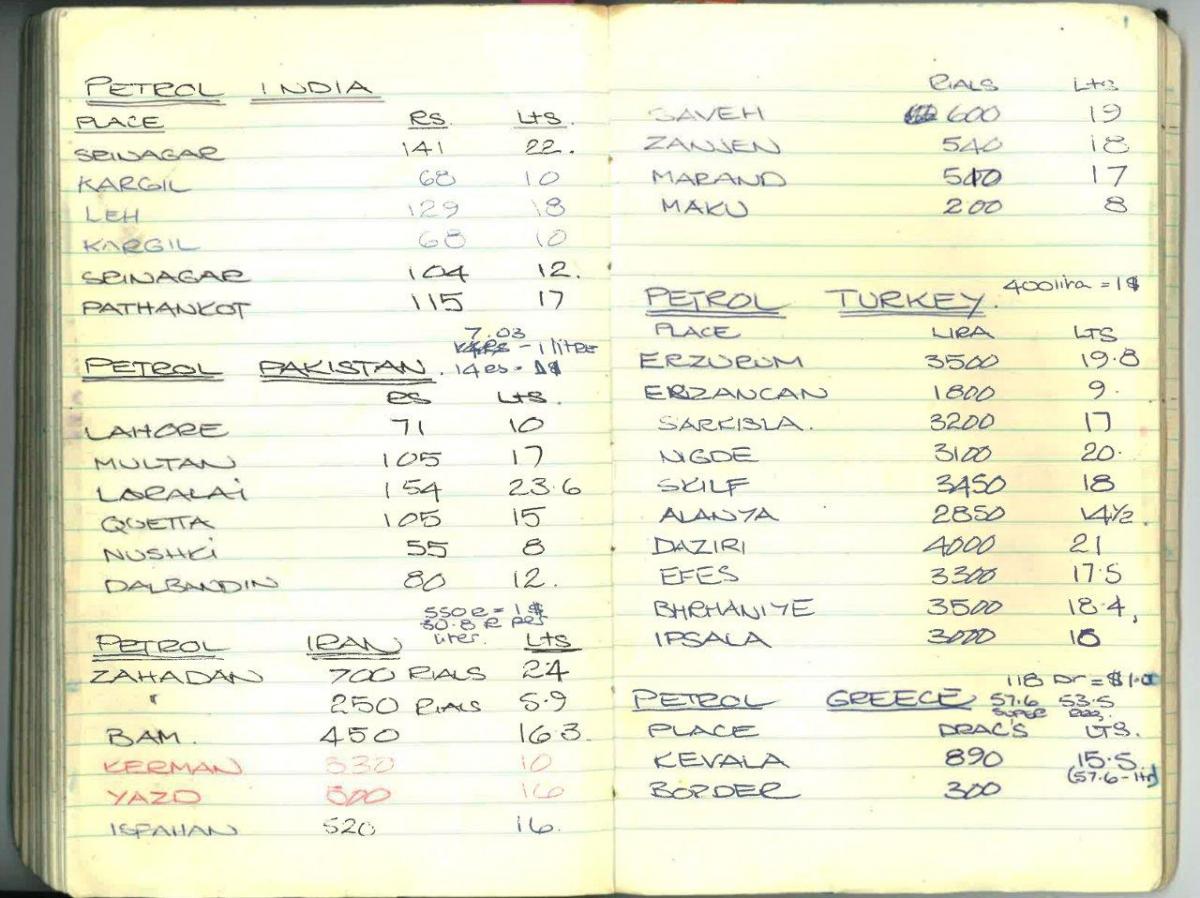 PETROL INDIA
PLACE RS. Lts.
SRINAGAR 141 22.
KARGIL 68 10
LEH 129 18
KARGIL 68 10
SRINAGAR 104 12.
PATHANKOT 115 17
7.03
- 1 litre
PETROL PAKISTAN. 14 Rs = 1$
RS Lts.
LAHORE 71 10
MULTAN 105 17
LORALAi 154 23.6
QUETTA 105 15
NUSHKi 55 8
DALBANDIN 80 12.
550 R = 1 $
30.8 R per
liter.
PETROL IRAN Lts
ZAHADAN 700 RIALS 24
" 250 RIALS 5.9
BAM. 450 16.3.
KERMAN 330 10
YAZD 500 16
ISFAHAN 520 16.
RIALS Lts
SAVEH 600 19
ZANJEN 540 18
MARAND 510 17
MAKU 200 8
400 lira = 1$
PETROL TURKEY.
PLACE LIRA LTS
ERZURUM 3500 19.8
ERZANCAN 1800 9.
SARKISLA. 3200 17
NIGDE 3100 20.
SKILF 3450 18
ALANYA 2850 14½.
DAZIRI 4000 21
EFES 3300 17.5
BHRHANIYE 3500 18.4,
IPSALA 3000 16
118 Dr = $1.00
PETROL GREECE 57.6 53.5
SUPER REG.
PLACE DRAC'S LTS.
KEVALA 890 15.5
(57.6 - ltr)
BORDER 300